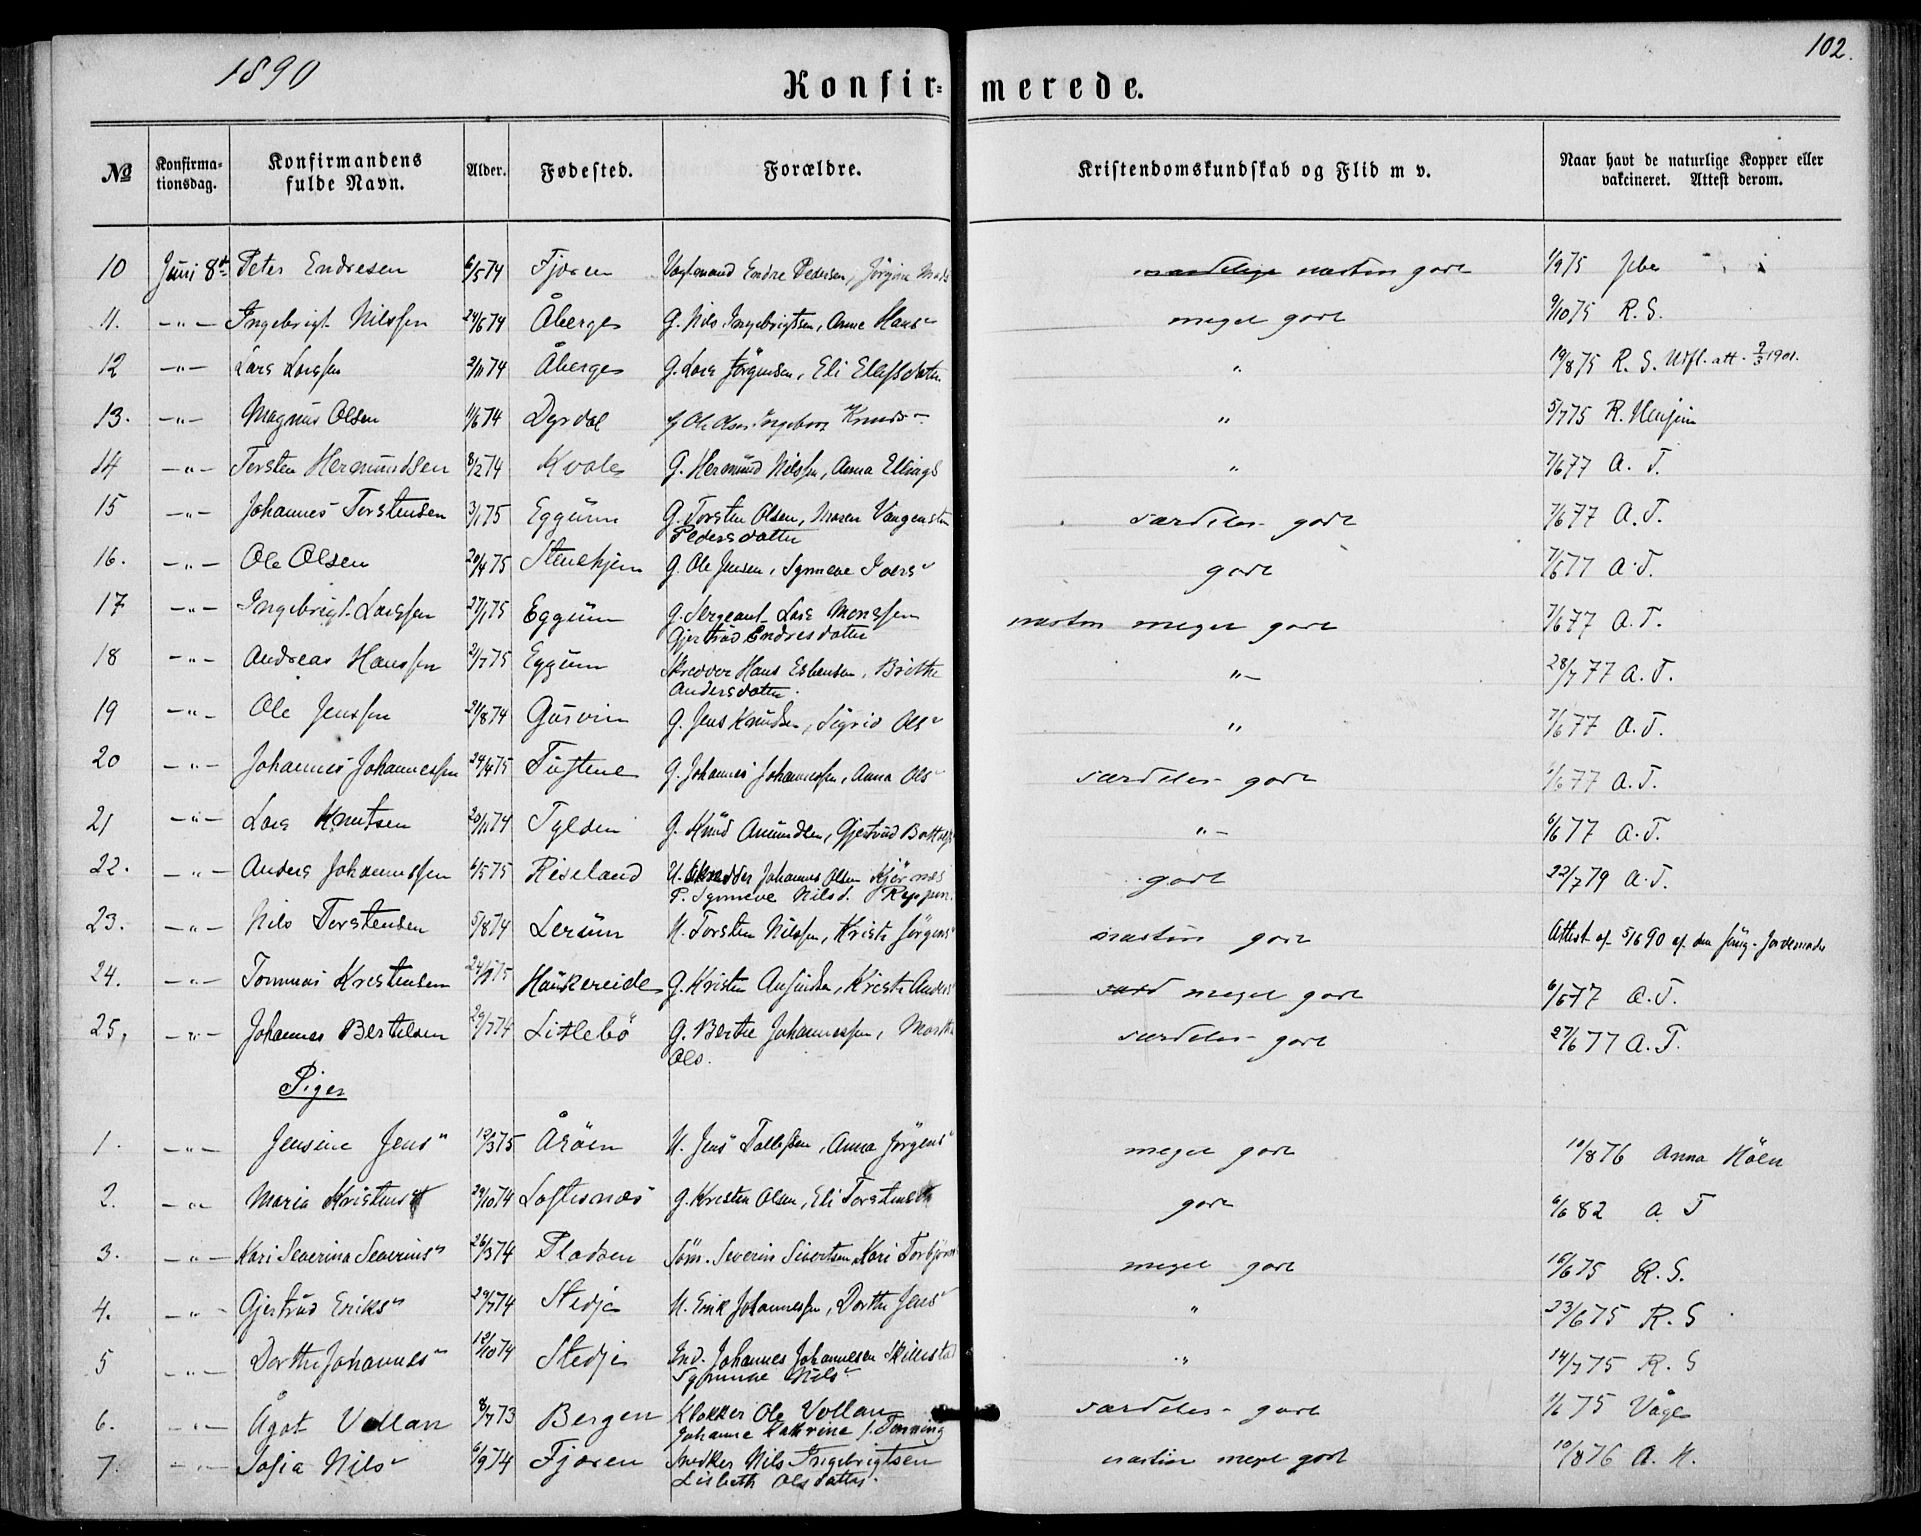 1890
102.
Konfir= merede.
№ Konfirma-tionsdag. Konfirmandens fulde Navn. Alder. Fødested. Forældre. Kristendomskundskab og Flid m v. Naar havt de naturlige Kopper eller vakcineret. Attest derom.
10 Juni 8d Peter Endresen 6/5 74 Fjæren Endre Pedersen, Jörgine næsten godt 1/9 75
11. -"- Ingebrigt Nilssen 24/6 74 Åberge G. Nils Ingebrigtsen, Anne Hans" meget godt 9/10 75 R. S.
12 -"- Lars Larssen 2/11 74 Åberge G. Lars Jörgensen, Eli Ellefsdatter " 19/8 75 R. S. Utfl. att. 2/3 1901.
13. -"- Magnus Olsen 11/6 74 Dyrdal G. Ole Olsen, Ingeborg Knuds" " 5/7 75 R. Husum
14 -"- Torsten Hermundsen 8/2 74 Kvale G. Hermund Nilssen, Anna Ellings " 7/6 77 A. T.
15 -"- Johannes Torstensen 3/1 75 Eggum G. Torsten Olsen, Maren Vangensten særdeles godt 7/6 77 A. T.
Pedersdatter
16. -"- Ole Olsen 20/4 75 Stenehjem G. Ole Jensen, Synneve Ivers" godt 7/6 77 A. T.
17 -"- Ingebrigt Larssen 27/1 75 Eggum G. Sergeant Lars Monssen næsten meget godt 7/6 77 A. T.
Gjertrud Endresdatter
18 -"- Andreas Hanssen 2/7 75 Eggum Skredder Hans Esbensen, Brithe "- 28/7 77 A. T.
Andersdatter.
19 -"- Ole Jenssen 21/8 74 Gurvin G. Jens Knudsen, Sigrid Ols" " 7/6 77 A. T.
20 -"- Johannes Johannessen 24/4 75 Tuftene G. Johannes Johannessen, Anna Ols" særdeles godt 6/6 77 A. T.
21 -"- Lars Knutsen 20/11 74 Tylden G. Knud Amundsen, Gjertrud Bottolfs "- 6/6 77 A. T.
22. -"- Anders Johannessen 6/5 75 Riseland U. Skredder Johannes Olsen Kjørnæs godt 22/7 79 A. T.
P. Synneve Nilsd. Ryppen.
23. -"- Nils Torstensen 5/8 74 Lerum H. Torsten Nilssen, Kristi Jörgens" næsten godt Attest af 5/6 90 af
24. -"- Tommas Kristensen 75 Haukereide G. Kristen Kristi Anders" meget godt 6/6 77 A. T.
25, -"- Johannes Bertelsen 29/7 74 Litlebö G. Bertel Johannessen, Marthe særdeles godt 27/6 77 A. T.
Ols.
Piger
1. -"- Jensine Jens" 12/3 75 Åröen H. Jens Tollefsen, Anna Jörgens" meget godt 10/8 76 Anna Höen
2. -"- Maria Kristens" 29/10 74 Loftesnæs G. Kristen Olsen, Eli Torstens godt 6/6 82 A. T
3. -"- Kari Severina Severins" 26/3 74 Pladsen Söm. Severin Sivertsen, Kari Torbjørns meget godt 16/6 75 R. S.
4. -"- Gjertrud Eriks" 29/7 74 Stedje H. Erik Johannessen, Dorthe Jens" " 23/6 75 R. S
5 -"- Dorthe Johannes" 12/10 74 Stedje Ind. Johannes Johannesen Skillestad " 14/7 75 R. S
Synneve Nils"
6. -"- Ågot Vollan 8/7 73 Bergen Klokker Ole Vollan særdeles godt 1/6 75 Våge
Johanne Kathrine f. Tønning
7. -"- Sofia Nils" 6/9 74 Fjæren Snedker Nils Ingebrigtsen næsten meget godt 10/8 76 A. H.
Lisbeth Olsdatter.